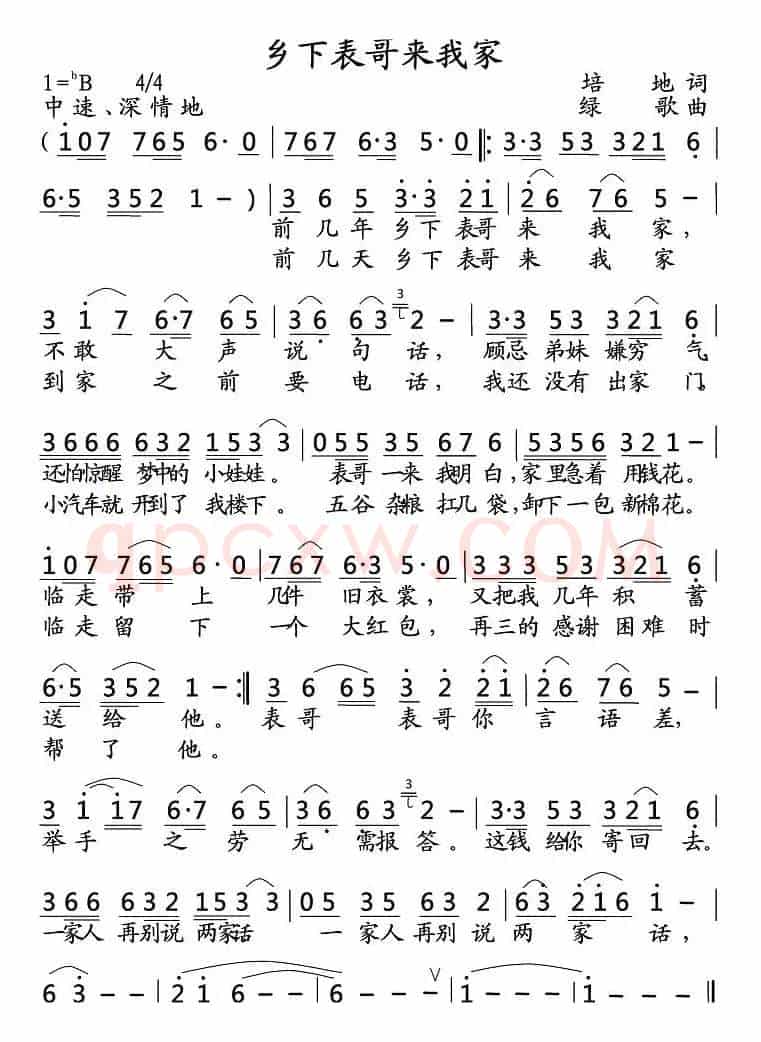 乡下表哥来我家
1=♭B 4/4 培 地 词
中速、深情地 绿 歌 曲
( 1̇07 765 6· 0 | 767 6·3 5· 0 ‖: 3·3 53 321 6̣ |
6̣·5̣ 352 1 – ) | 3 6 5 3̇·3̇ 2̇1̇ | 2̇6 76 5 – |
前 几 年 乡 下 表哥 来 我 家，
前 几 天 乡 下 表哥 来 我 家
3 1̇ 7 6·7 65 | 36̣ 6̣3 2 – | 3·3 53 321 6̣ |
不 敢 大 声 说 句 话，顾忌 弟妹 嫌穷 气
到 家 之 前 要 电 话，我还 没有 出家 门。
3666 632 153 3 | 055 35 676 | 5356 321 – |
还怕惊醒 梦中的 小娃娃。 表哥一来 我明白，家里急着 用钱花。
小汽车就 开到了 我楼下。 五谷杂粮 扛几袋，卸下一包 新棉花。
qpcxw.COM
1̇07 765 6· 0 | 767 6·3 5· 0 | 333 53 321 6̣ |
临走带 上 几件 旧衣裳，又把我 几年 积 蓄
临走留 下 一个 大红包，再三的 感谢 困难 时
6̣·5̣ 352 1 – :‖ 3 6 65 3̇ 2̇ 2̇1̇ | 2̇6 76 5 – |
送 给 他。表 哥 表 哥 你 言 语 差，
帮 了 他。
3 1̇ 1̇7 6·7 65 | 36̣ 6̣3 2 – | 3·3 53 321 6̣ |
举 手 之 劳 无 需报 答。这钱 给你 寄回 去。
366 632 153 3 | 05 35 6̣3 2 | 6̣3 2̇1̇6 1̇ – |
一家人 再别说 两家话 一 家人 再别 说 两 家 话，
6 3̇ – – | 2̇ 1̇ 6 – | 6 – – – ∨ | 1̇ – – – | 1̇ – – ‖